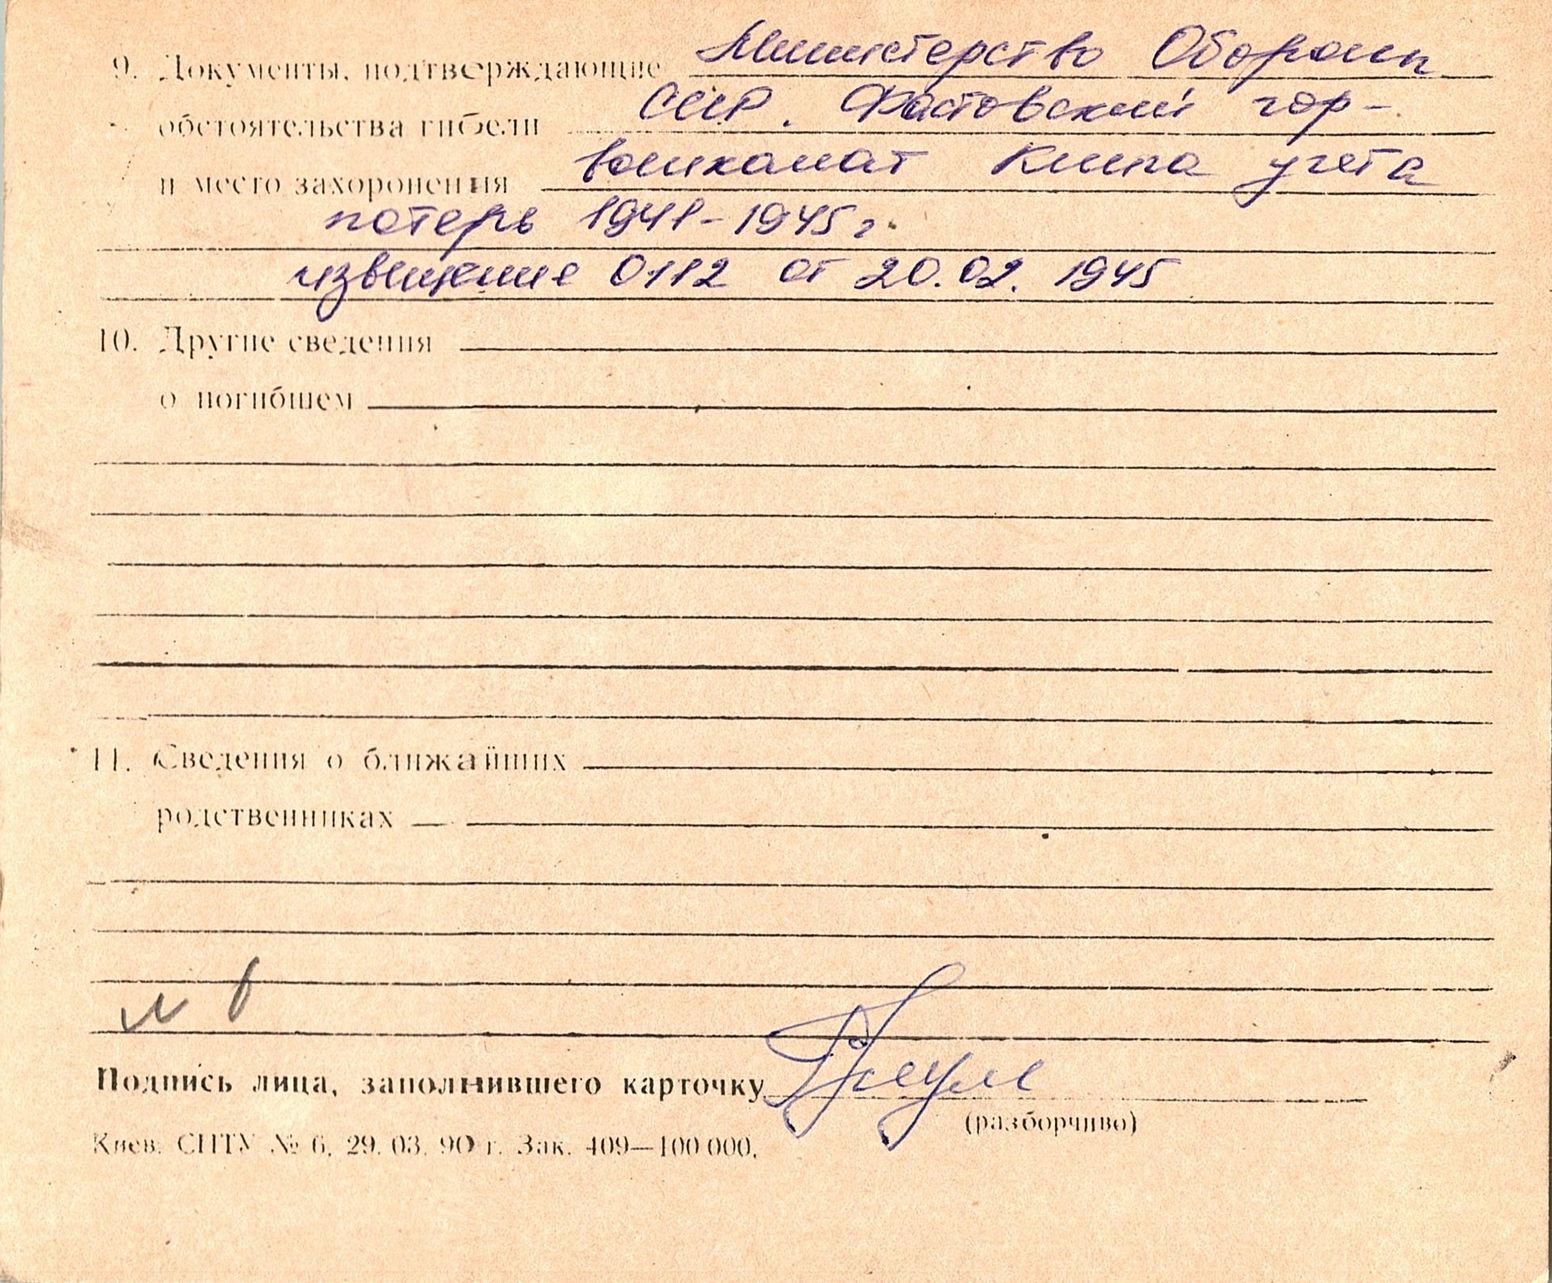 9. Документы, подтверждающие Министерство Обороны
обстоятельства гибели СССР. Фастовский гор-
и место захоронения военкомат Книга учета
потерь 1941-1945 г.
извещение 0112 от 20.02.1945
10. Другие сведения
о погибшем
11. Сведения о ближайших
родственниках
Подпись лица, заполнившего карточку
(разборчиво)
Киев. СПТУ № 6, 29. 03. 90 г. Зак. 409—100 000.